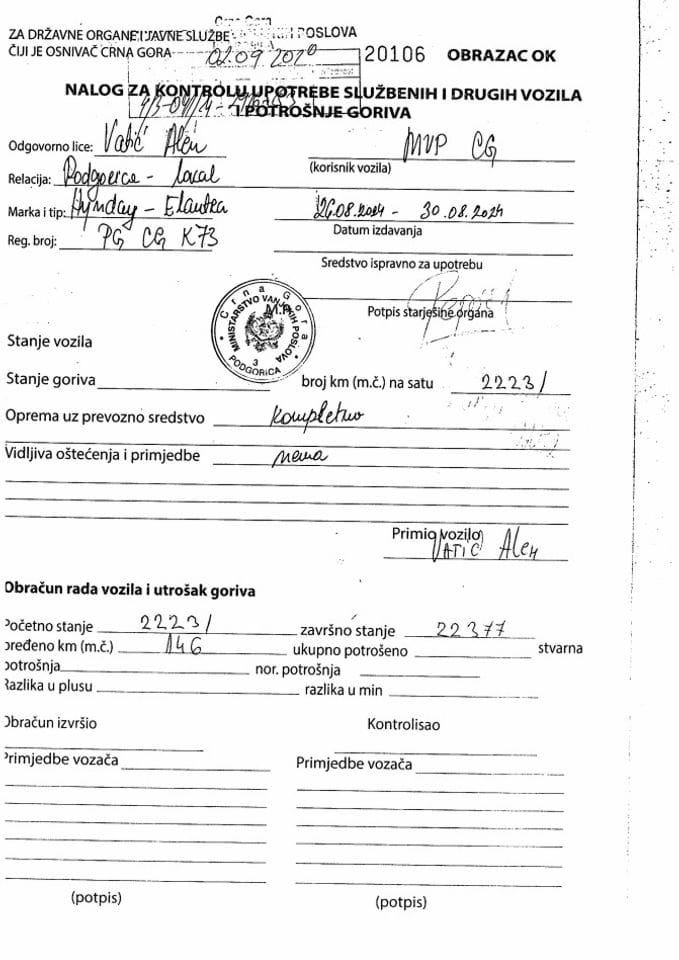 Crna Gora
ZA DRŽAVNE ORGANE I JAVNE SLUŽBE POSLOVA
ČIJI JE OSNIVAČ CRNA GORA 02.09 20106 OBRAZAC OK
NALOG ZA KONTROLU UPOTREBE SLUŽBENIH I DRUGIH VOZILA
I POTROŠNJE GORIVA
Odgovorno lice: Vatić Alen MVP CG
(korisnik vozila)
Relacija: Podgorica - local
Marka i tip: Hynday - Elantra 26.08.2024 - 30.08.2024
Datum izdavanja
Reg. broj: PG CG K73
Sredstvo ispravno za upotrebu
Crna Gora
MINISTARSTVO VANJSKIH POSLOVA
M.P.
3
PODGORICA
Potpis starješine organa
Stanje vozila
Stanje goriva broj km (m.č.) na satu 22231
Oprema uz prevozno sredstvo kompletno
Vidljiva oštećenja i primjedbe nema
Primio vozilo
VATIĆ Alen
Obračun rada vozila i utrošak goriva
Početno stanje 22231 završno stanje 22377
pređeno km (m.č.) 146 ukupno potrošeno stvarna
potrošnja nor. potrošnja
Razlika u plusu razlika u min
Obračun izvršio Kontrolisao
Primjedbe vozača Primjedbe vozača
(potpis) (potpis)